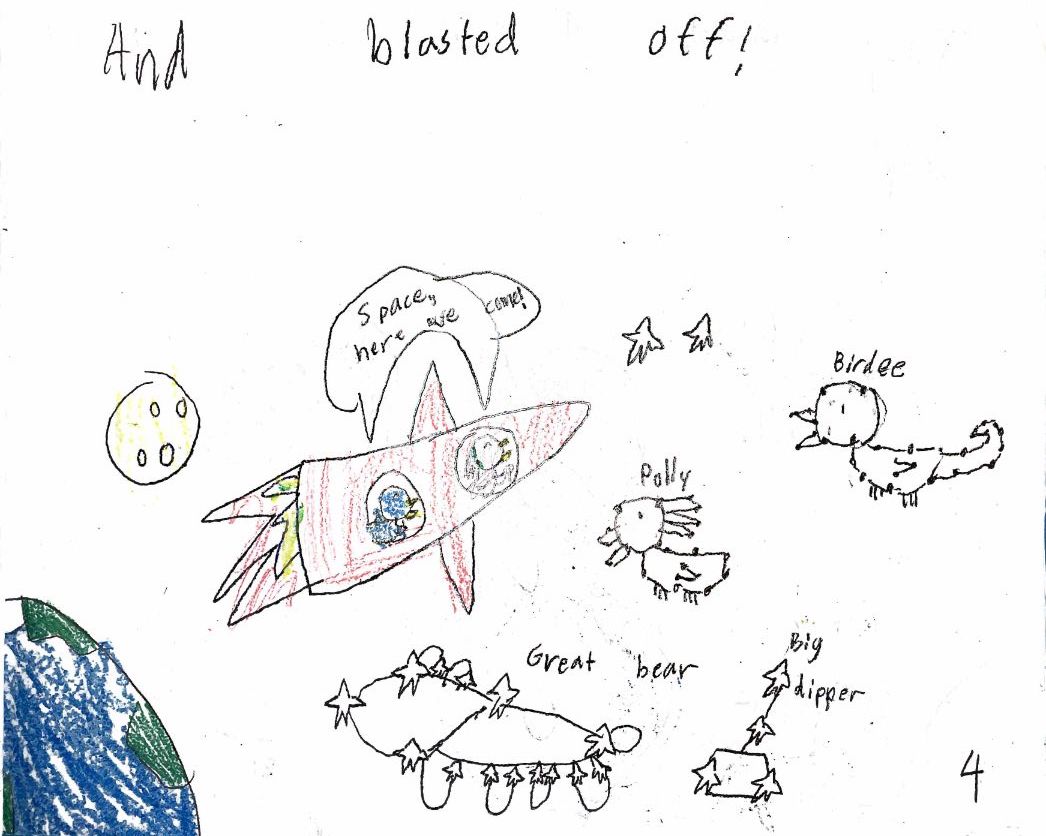 And blasted off!
Space,
here we come!
Birdee
Polly
Great bear
Big
dipper
4